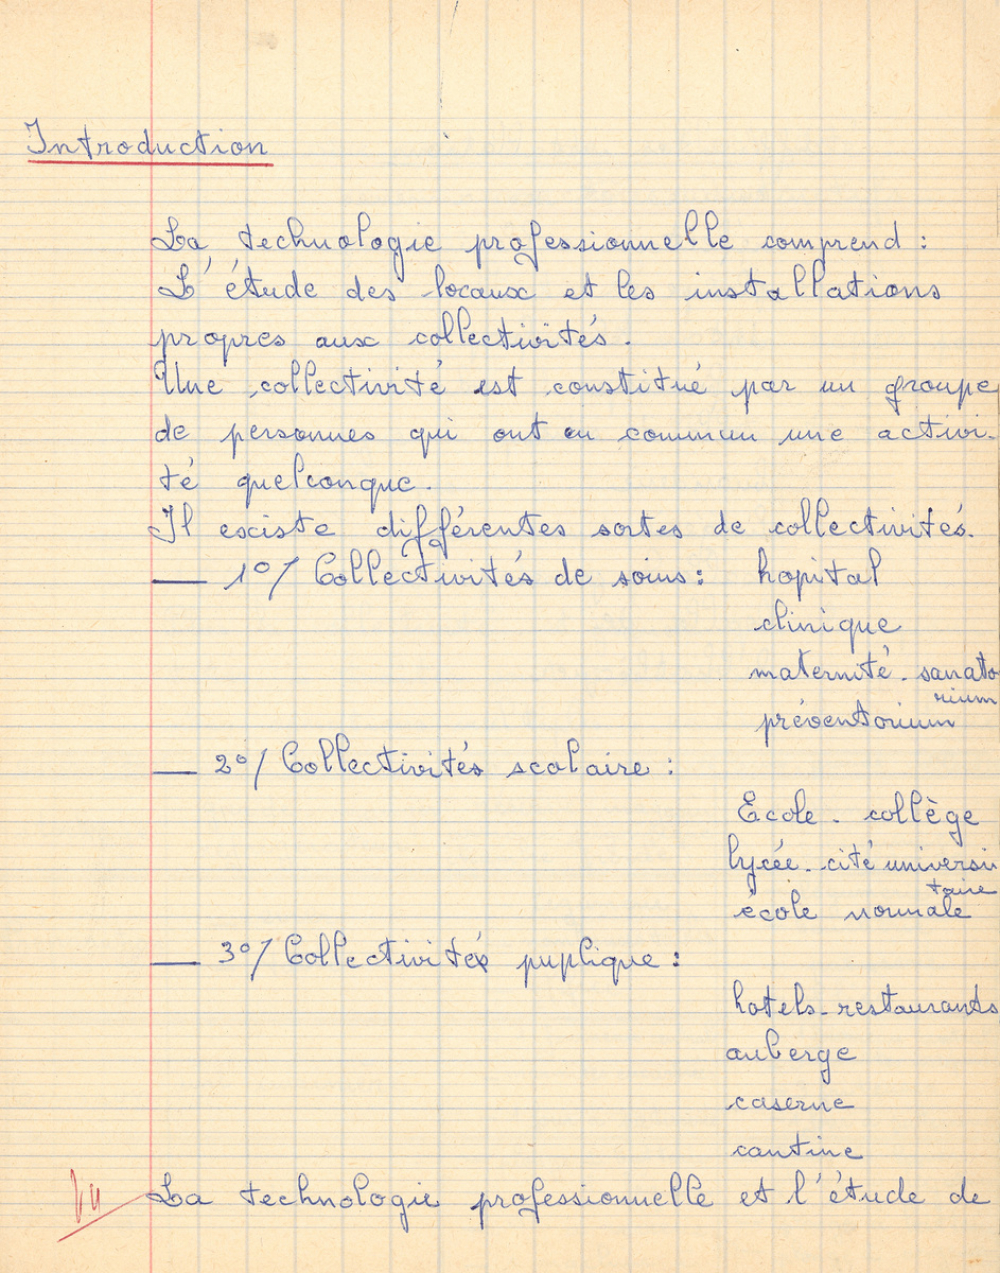 Introduction
La technologie professionnelle comprend :
L'étude des locaux et les installations
propres aux collectivités.
Une collectivité est constitué par un groupe
de personnes qui ont en commun une activi-
té quelconque.
Il existe différentes sortes de collectivités.
— 1°/ Collectivités de soins : hopital
clinique
maternité. sanato
rium
préventorium
— 2°/ Collectivités scolaire :
Ecole. collège
lycée. cité universi
taire
école normale
— 3°/ Collectivités puplique :
hotels. restaurants
auberge
caserne
cantine
Vu
La technologie professionnelle et l'étude de